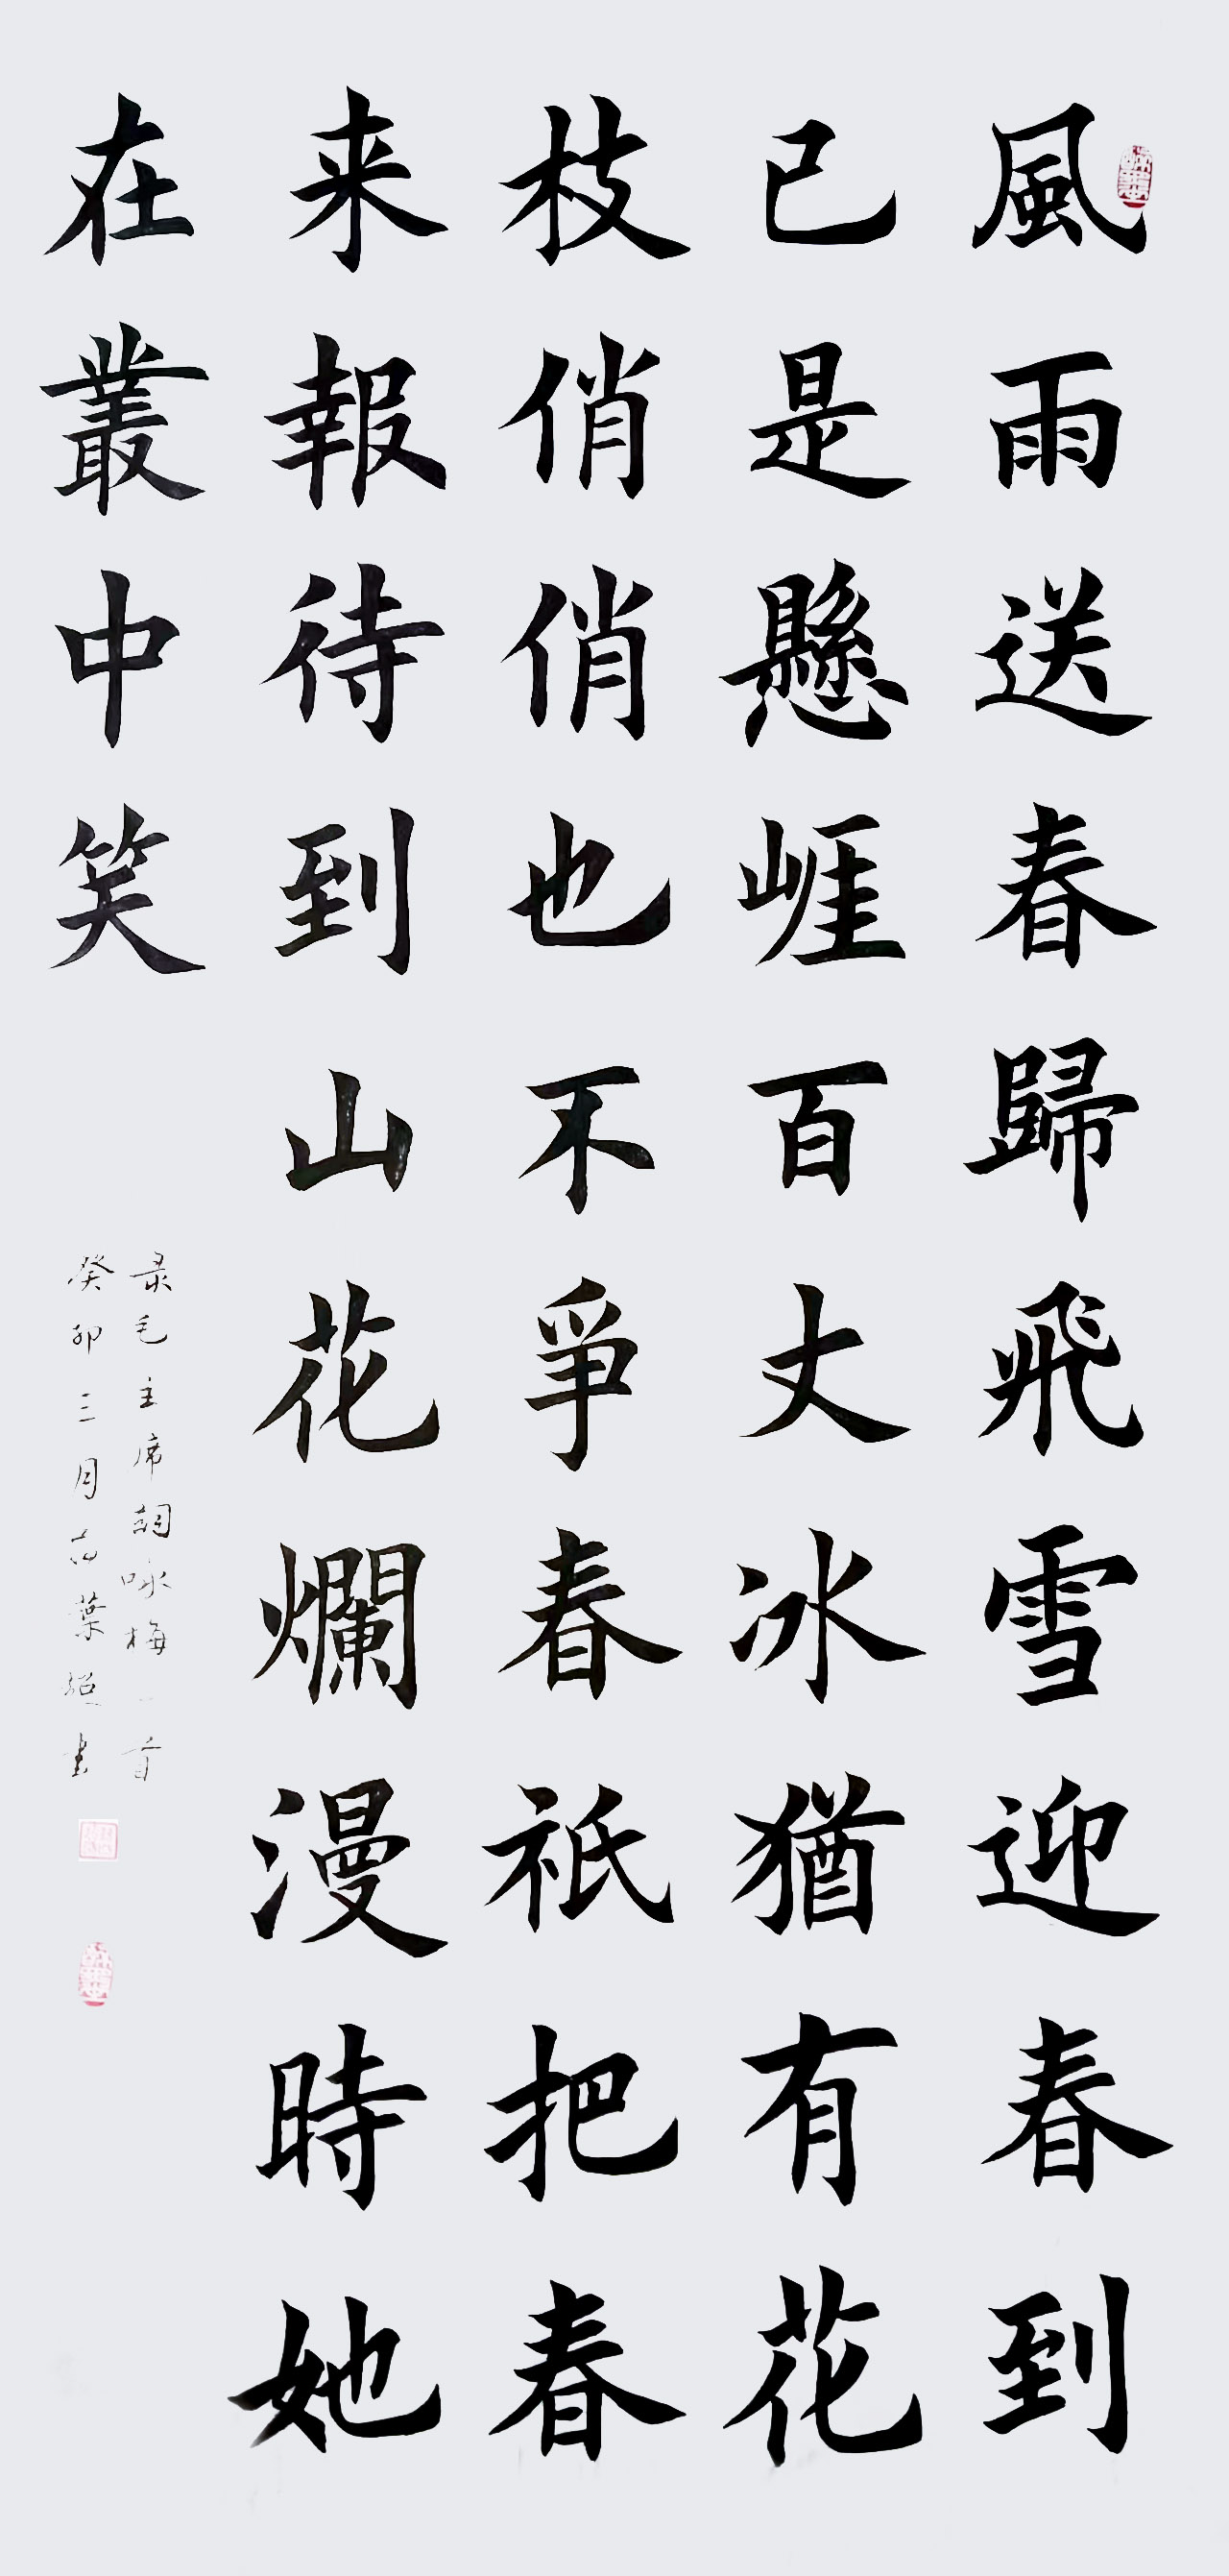 風雨送春歸飛雪迎春到
已是懸崕百丈冰猶有花
枝俏俏也不爭春祇把春
来報待到山花爛漫時她
在叢中笑
录毛主席詞咏梅一首
癸卯三月葉書